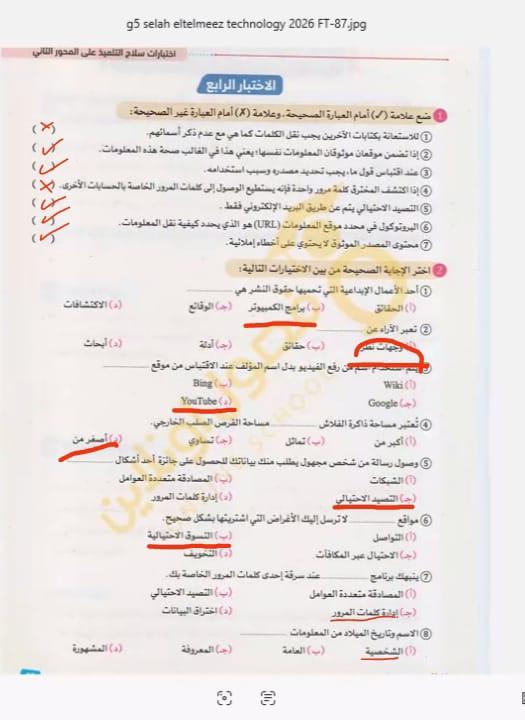 g5 selah eltelmeez technology 2026 FT-87.jpg
اختبارات سلاح التلميذ على المحور الثاني
الاختبار الرابع
1 ضع علامة (✓) أمام العبارة الصحيحة، وعلامة (✗) أمام العبارة غير الصحيحة:
1 للاستعانة بكتابات الآخرين يجب نقل الكلمات كما هي مع عدم ذكر أسمائهم. (✗)
2 إذا تضمن موقعان موثوقان المعلومات نفسها؛ يعني هذا في الغالب صحة هذه المعلومات. (✓)
3 عند اقتباس قول ما، يجب تحديد مصدره وسبب استخدامه. (✓)
4 إذا اكتشف المخترق كلمة مرور واحدة فإنه يستطيع الوصول إلى كلمات المرور الخاصة بالحسابات الأخرى. (✗)
5 التصيد الاحتيالي يتم عن طريق البريد الإلكتروني فقط. (✓)
6 البروتوكول في محدد موقع المعلومات (URL) هو الذي يحدد كيفية نقل المعلومات. (✓)
7 محتوى المصدر الموثوق لا يحتوي على أخطاء إملائية. (✓)
2 اختر الإجابة الصحيحة من بين الاختيارات التالية:
1 أحد الأعمال الإبداعية التي تحميها حقوق النشر هي ..........
(أ) الحقائق (ب) برامج الكمبيوتر (جـ) الوقائع (د) الاكتشافات
2 تعبر الآراء عن ..........
(أ) وجهات نظر (ب) حقائق (جـ) أدلة (د) أبحاث
3 يتم استخدام اسم من رفع الفيديو بدل اسم المؤلف عند الاقتباس من موقع ..........
(أ) Wiki (ب) Bing
(جـ) Google (د) YouTube
4 تُعتبر مساحة ذاكرة الفلاش .......... مساحة القرص الصلب الخارجي.
(أ) أكبر من (ب) تماثل (جـ) تساوي (د) أصغر من
5 وصول رسالة من شخص مجهول يطلب منك بياناتك للحصول على جائزة أحد أشكال ..........
(أ) الشبكات (ب) المصادقة متعددة العوامل
(جـ) التصيد الاحتيالي (د) إدارة كلمات المرور
6 مواقع .......... لا ترسل إليك الأغراض التي اشتريتها بشكل صحيح.
(أ) التواصل (ب) التسوق الاحتيالية
(جـ) الاحتيال عبر المكافآت (د) التخويف
7 ينبهك برنامج .......... عند سرقة إحدى كلمات المرور الخاصة بك.
(أ) المصادقة متعددة العوامل (ب) التصيد الاحتيالي
(جـ) إدارة كلمات المرور (د) اختراق البيانات
8 الاسم وتاريخ الميلاد من المعلومات ..........
(أ) الشخصية (ب) العامة (جـ) المعروفة (د) المشهورة